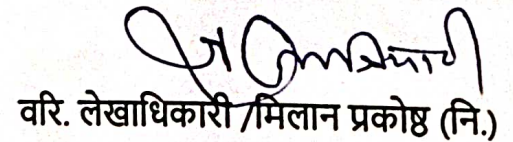 वरि. लेखाधिकारी/मिलान प्रकोष्ठ (नि.)